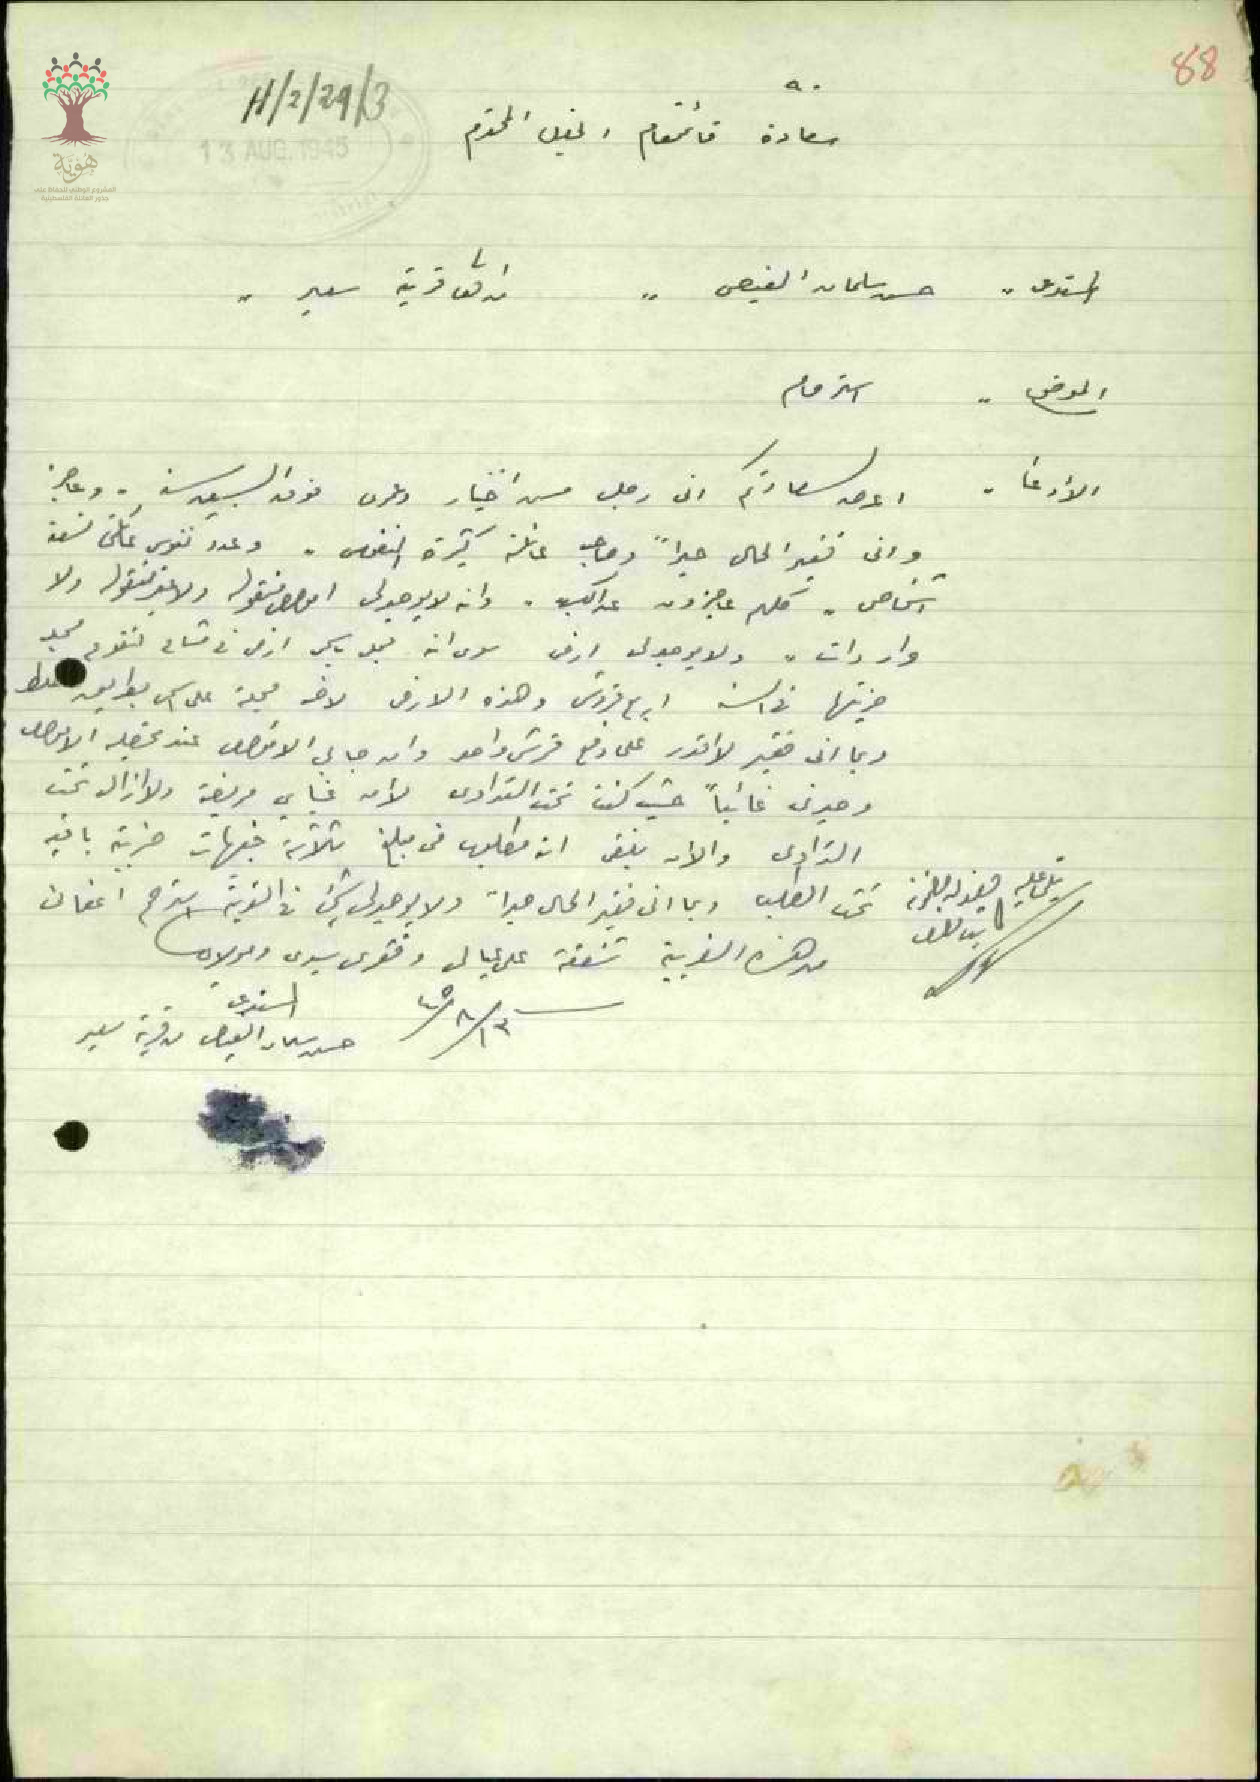 88
H/2/29/3
13 AUG. 1945
هوية
المشروع الوطني للحفاظ على
جذور العائلة الفلسطينية
سعادة قائمقام الخليل المحترم
المستدعي " حسن سلمان " من قرية سعير "
الموضوع " استرحام
الادعا " اعرض لسعادتكم اني رجل مسن اختيار وعمري فوق السبعين سنة . وعاجز
واني فقير الحال جداً وصاحب عائلة كثيرة النفوس . وعدد نفوس عائلتي تسعة
اشخاص . كلهم عاجزون عن الكسب . وانه لا يوجد لي اموال منقولة ولا غير منقولة ولا
واردات . ولا يوجد لي ارض سوى انه مسجل باسمي ارض في
ضريبتها في السنة اربع قروش وهذه الارض مسجلة على اسمي بطريق الغلط
وبما اني فقير لا اقدر على دفع قرش واحد وان جابي الاموال عند تحصيله الاموال
وجدني غائباً حيث كنت تحت التداوي لان مريضة ولا ازال تحت
التداوي والان بلغني ان مطلوب مني مبلغ ثلاثة جنيهات ضريبة باقية
تحت الطلب وبما اني فقير الحال جدا ولا يوجد لي شيء في القرية استرحم اعفائي
من هذه الضريبة شفقة على عيالي وفقري سيدي ومولاي
١٣/٨/٤٥
المستدعي
حسن سلمان من قرية سعير